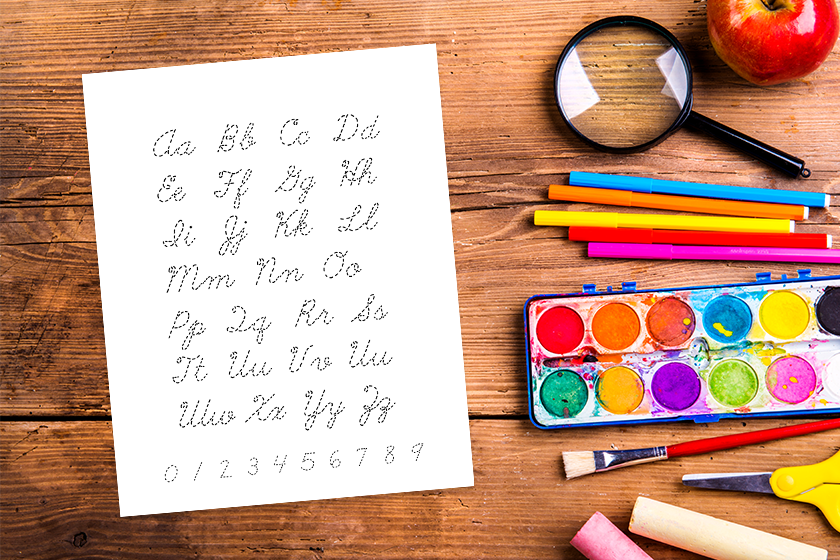 Aa Bb Cc Dd
Ee Ff Gg Hh
Ii Jj Kk Ll
Mm Nn Oo
Pp Qq Rr Ss
Tt Uu Vv Uu
Ww Xx Yy Zz
0 1 2 3 4 5 6 7 8 9